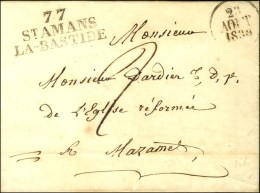 77
ST AMANS
LA-BASTIDE
22
AOUT
1838
Monsieur
Monsieur Dardier
de l'Eglise réformée
2
à Mazamet